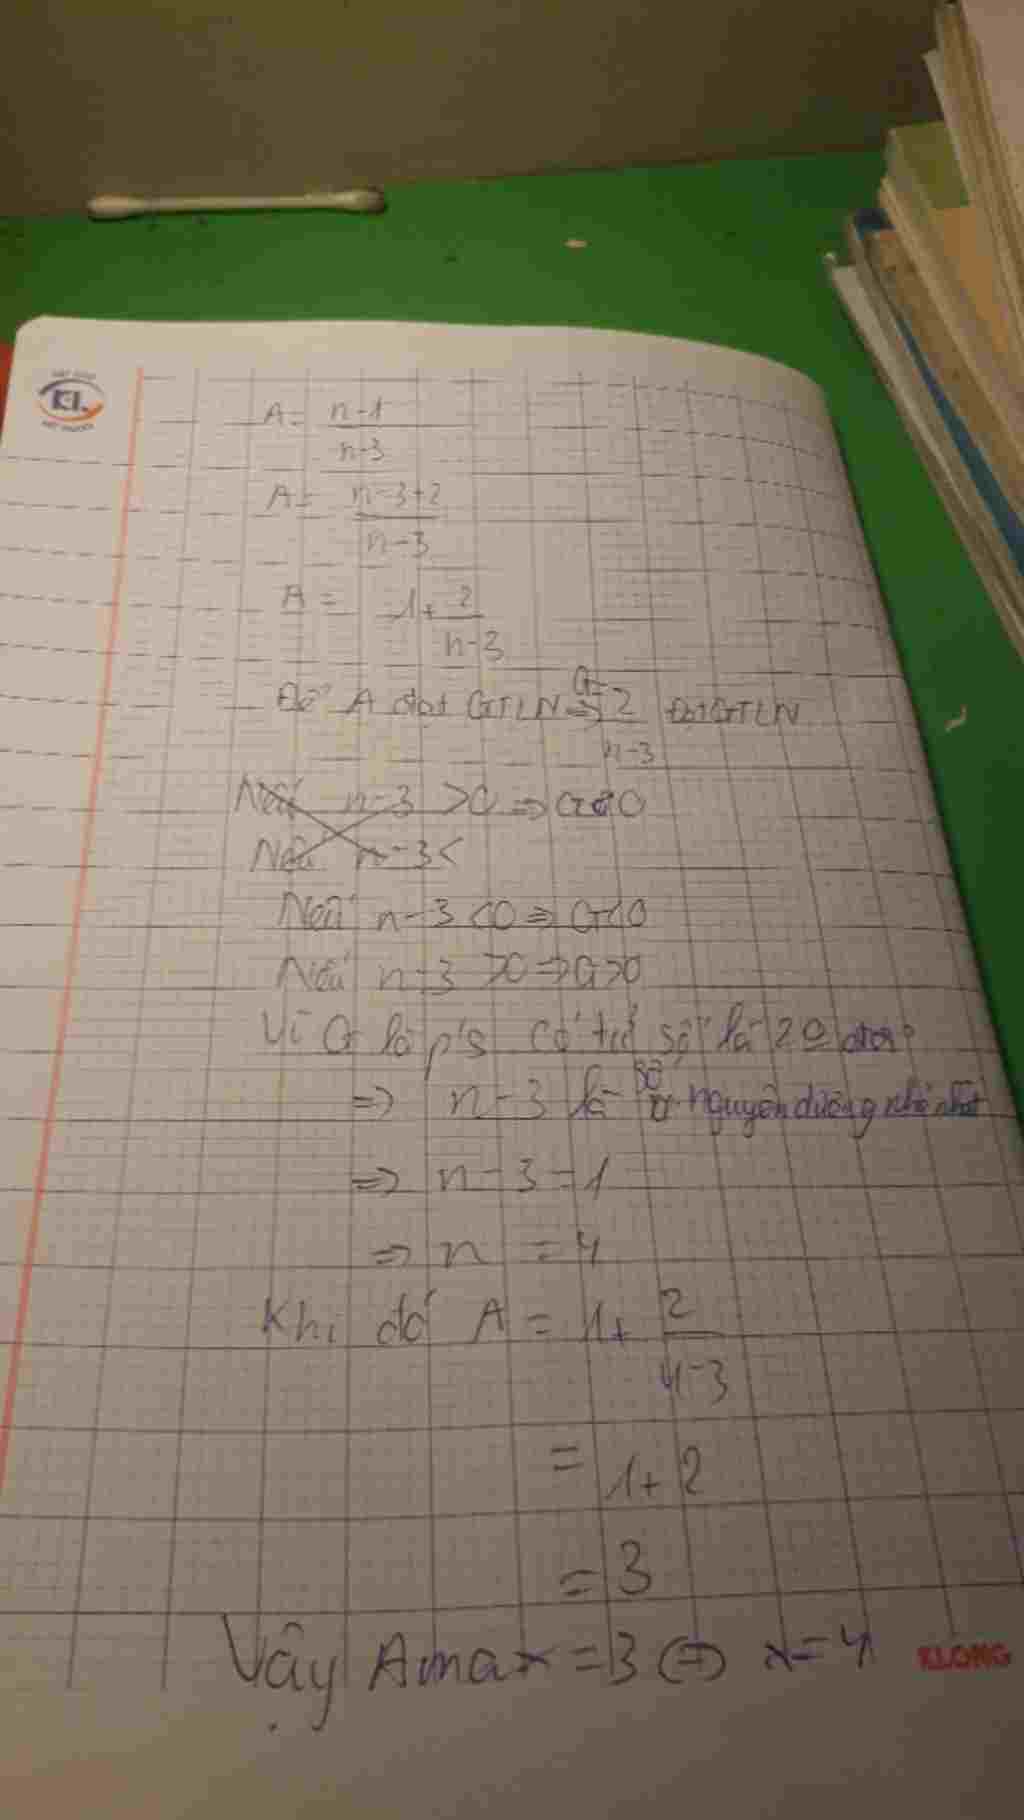 KL
A = n-1
n-3
A = n-3+2
n-3
A = 1+ 2
n-3
Để A đạt GTLN => G= 2 Đạt GTLN
n-3
Nếu n-3 >0 => G<0
Nếu n-3 <
Nếu n-3 <0 => G<0
Nếu n-3 >0 => G>0
Vì G là p/s có tử số là 2
=> n-3 là số nguyên dương nhỏ nhất
=> n-3=1
=> n = 4
Khi đó A = 1+ 2
4-3
= 1+2
= 3
Vậy Amax = 3 <=> x=4
KLONG